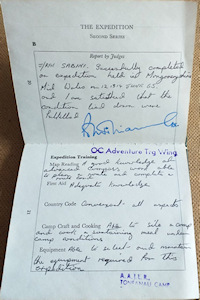 THE EXPEDITION
SECOND SERIES
B
Report by Judges
SABHAY. Successfully completed
an expedition held at
Mid Wales
and I am satisfied that the
condition laid down were
fulfilled.
OC Adventure Trg Wing
Expedition Training
Map Reading A good knowledge at
advanced compass, work able
to plan a route and complete a
First Aid Adequate knowledge
Country Code Conversant all aspects
Camp Craft and Cooking Able to site a camp
and cook a sustaining meal under
camp conditions
Equipment Able to select and maintain
the equipment required for this
expedition
TONFANAU CAMP